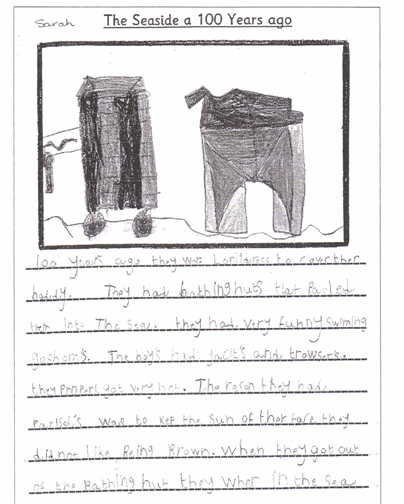 Sarah
The Seaside a 100 Years ago
100 years ago they wore long dress to cover ther
boddy. They had bathing huts that Pooled
them into The Sea. they had very funny swiming
The boy's had and trowsers.
they got very hot. The reson they had
Parlsol's was to kep the sun of ther face they
did not like Being Brown. When they got out
of the Bathing hut they wher in the Sea